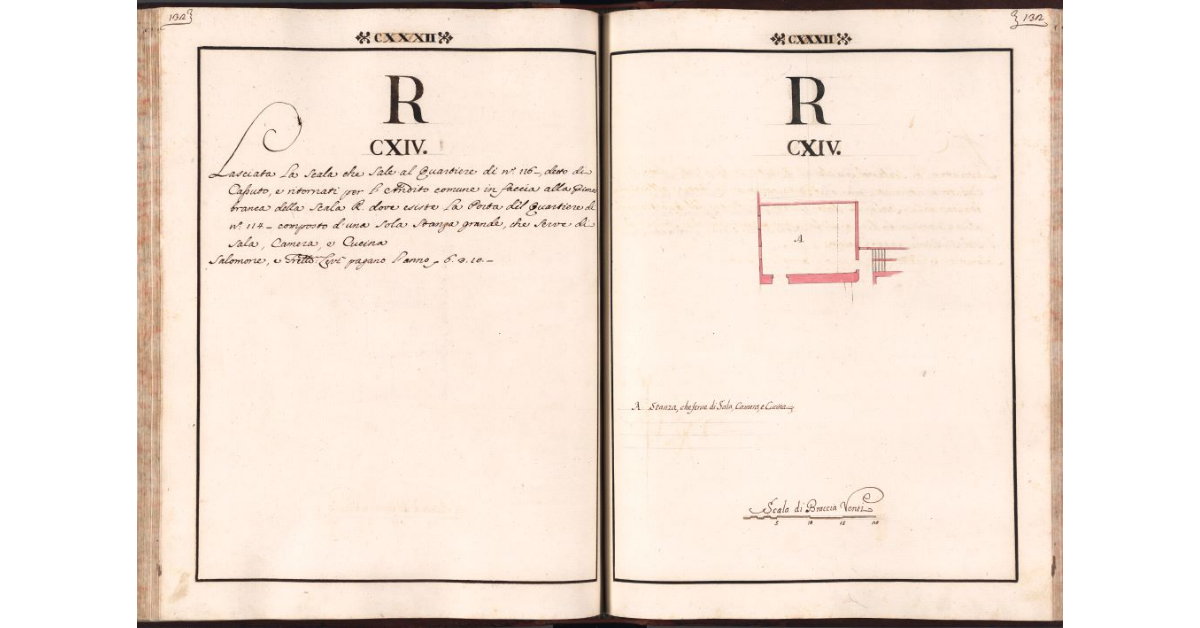 132
CXXXII
R
CXIV.
Lasciata la Scala che Sale al Quartiere di nº. 116_, detto di
Caputo, e ritornati per l'Andito comune in faccia alla
branca della Scala R. dove esiste la Porta del Quartiere di
nº. 114_ composto d'una Sola Stanza grande, che Serve di
Sala, Camera, e Cucina
Salomone, e Levi pagano l'anno
132
CXXXII
R
CXIV.
A
A Stanza, che serve di Sala, Camera, e Cucina
Scala di Braccia Venti
5 10 15 20